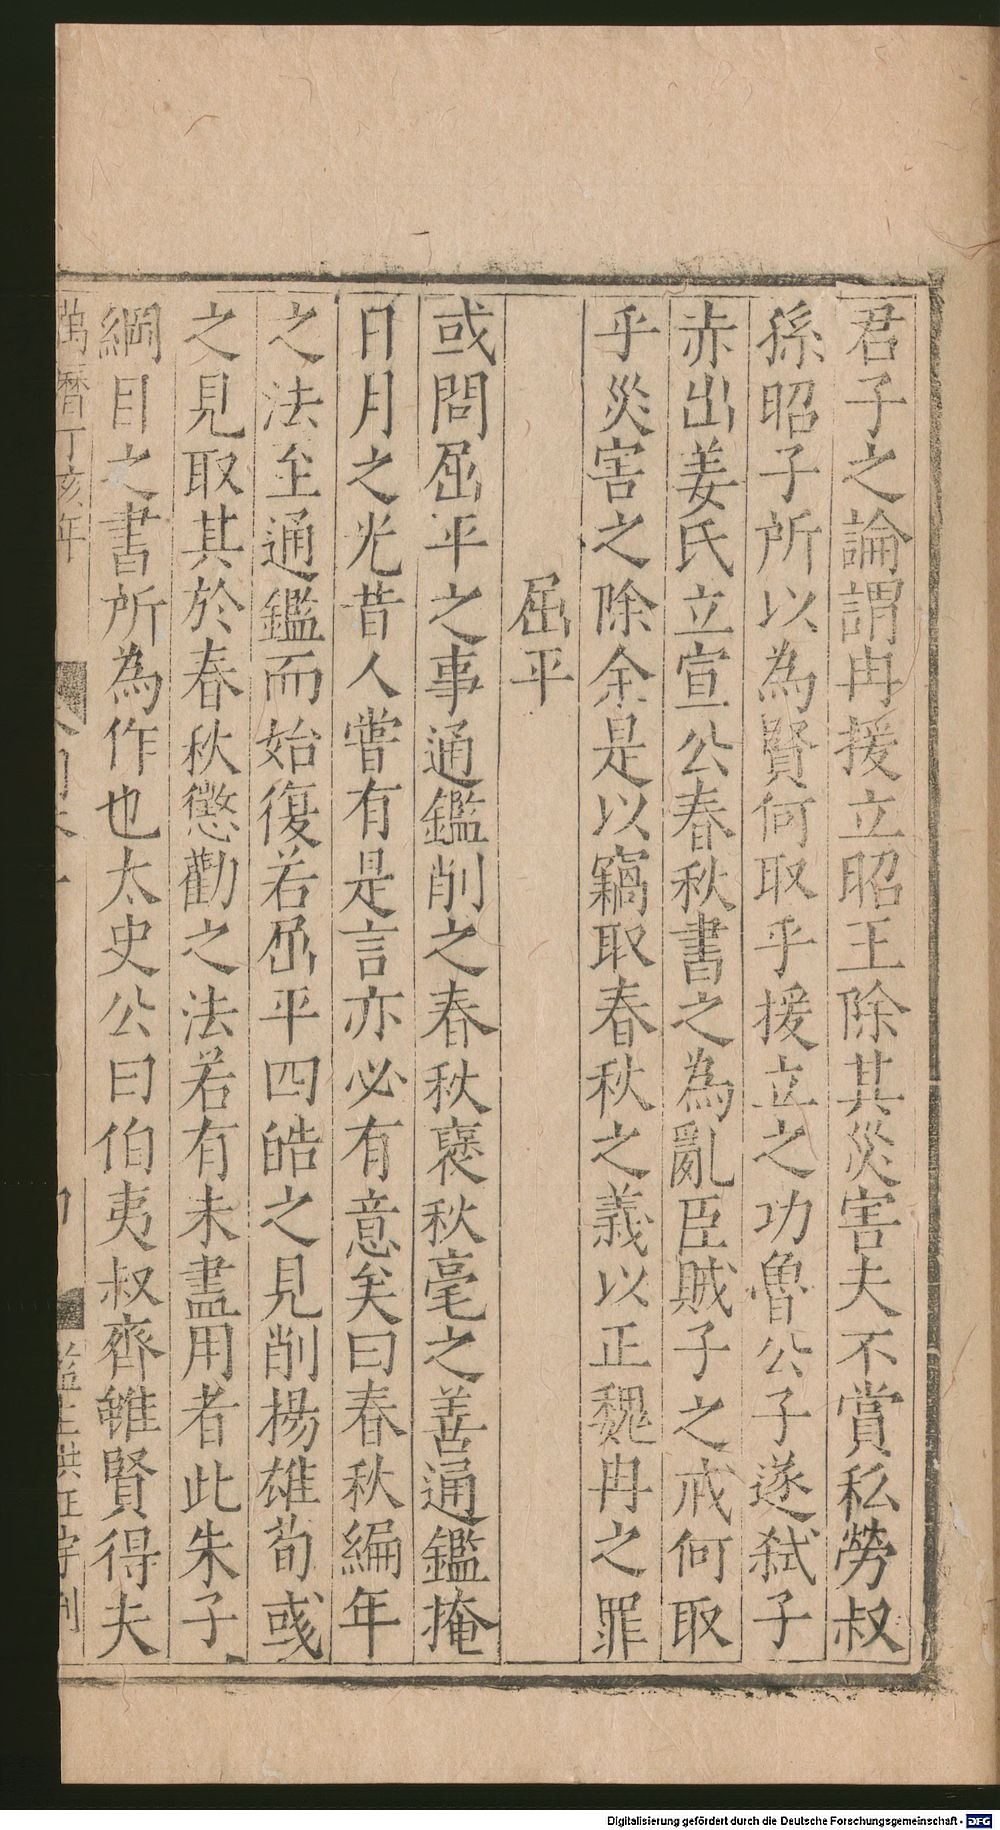 君子之論謂冉援立昭王除其災害夫不賞私勞叔
孫昭子所以為賢何取乎援立之功魯公子遂弑子
赤出姜氏立宣公春秋書之為亂臣賊子之戒何取
乎災害之除余是以竊取春秋之義以正魏冉之罪
屈平
或問屈平之事通鑑削之春秋褒秋毫之善通鑑掩
日月之光昔人嘗有是言亦必有意矣曰春秋編年
之法至通鑑而始復若屈平四皓之見削揚雄荀彧
之見取其於春秋懲勸之法若有未盡用者此朱子
綱目之書所為作也太史公曰伯夷叔齊雖賢得夫
萬曆丁亥年
監生洪正字刊
Digitalisierung gefördert durch die Deutsche Forschungsgemeinschaft - DFG